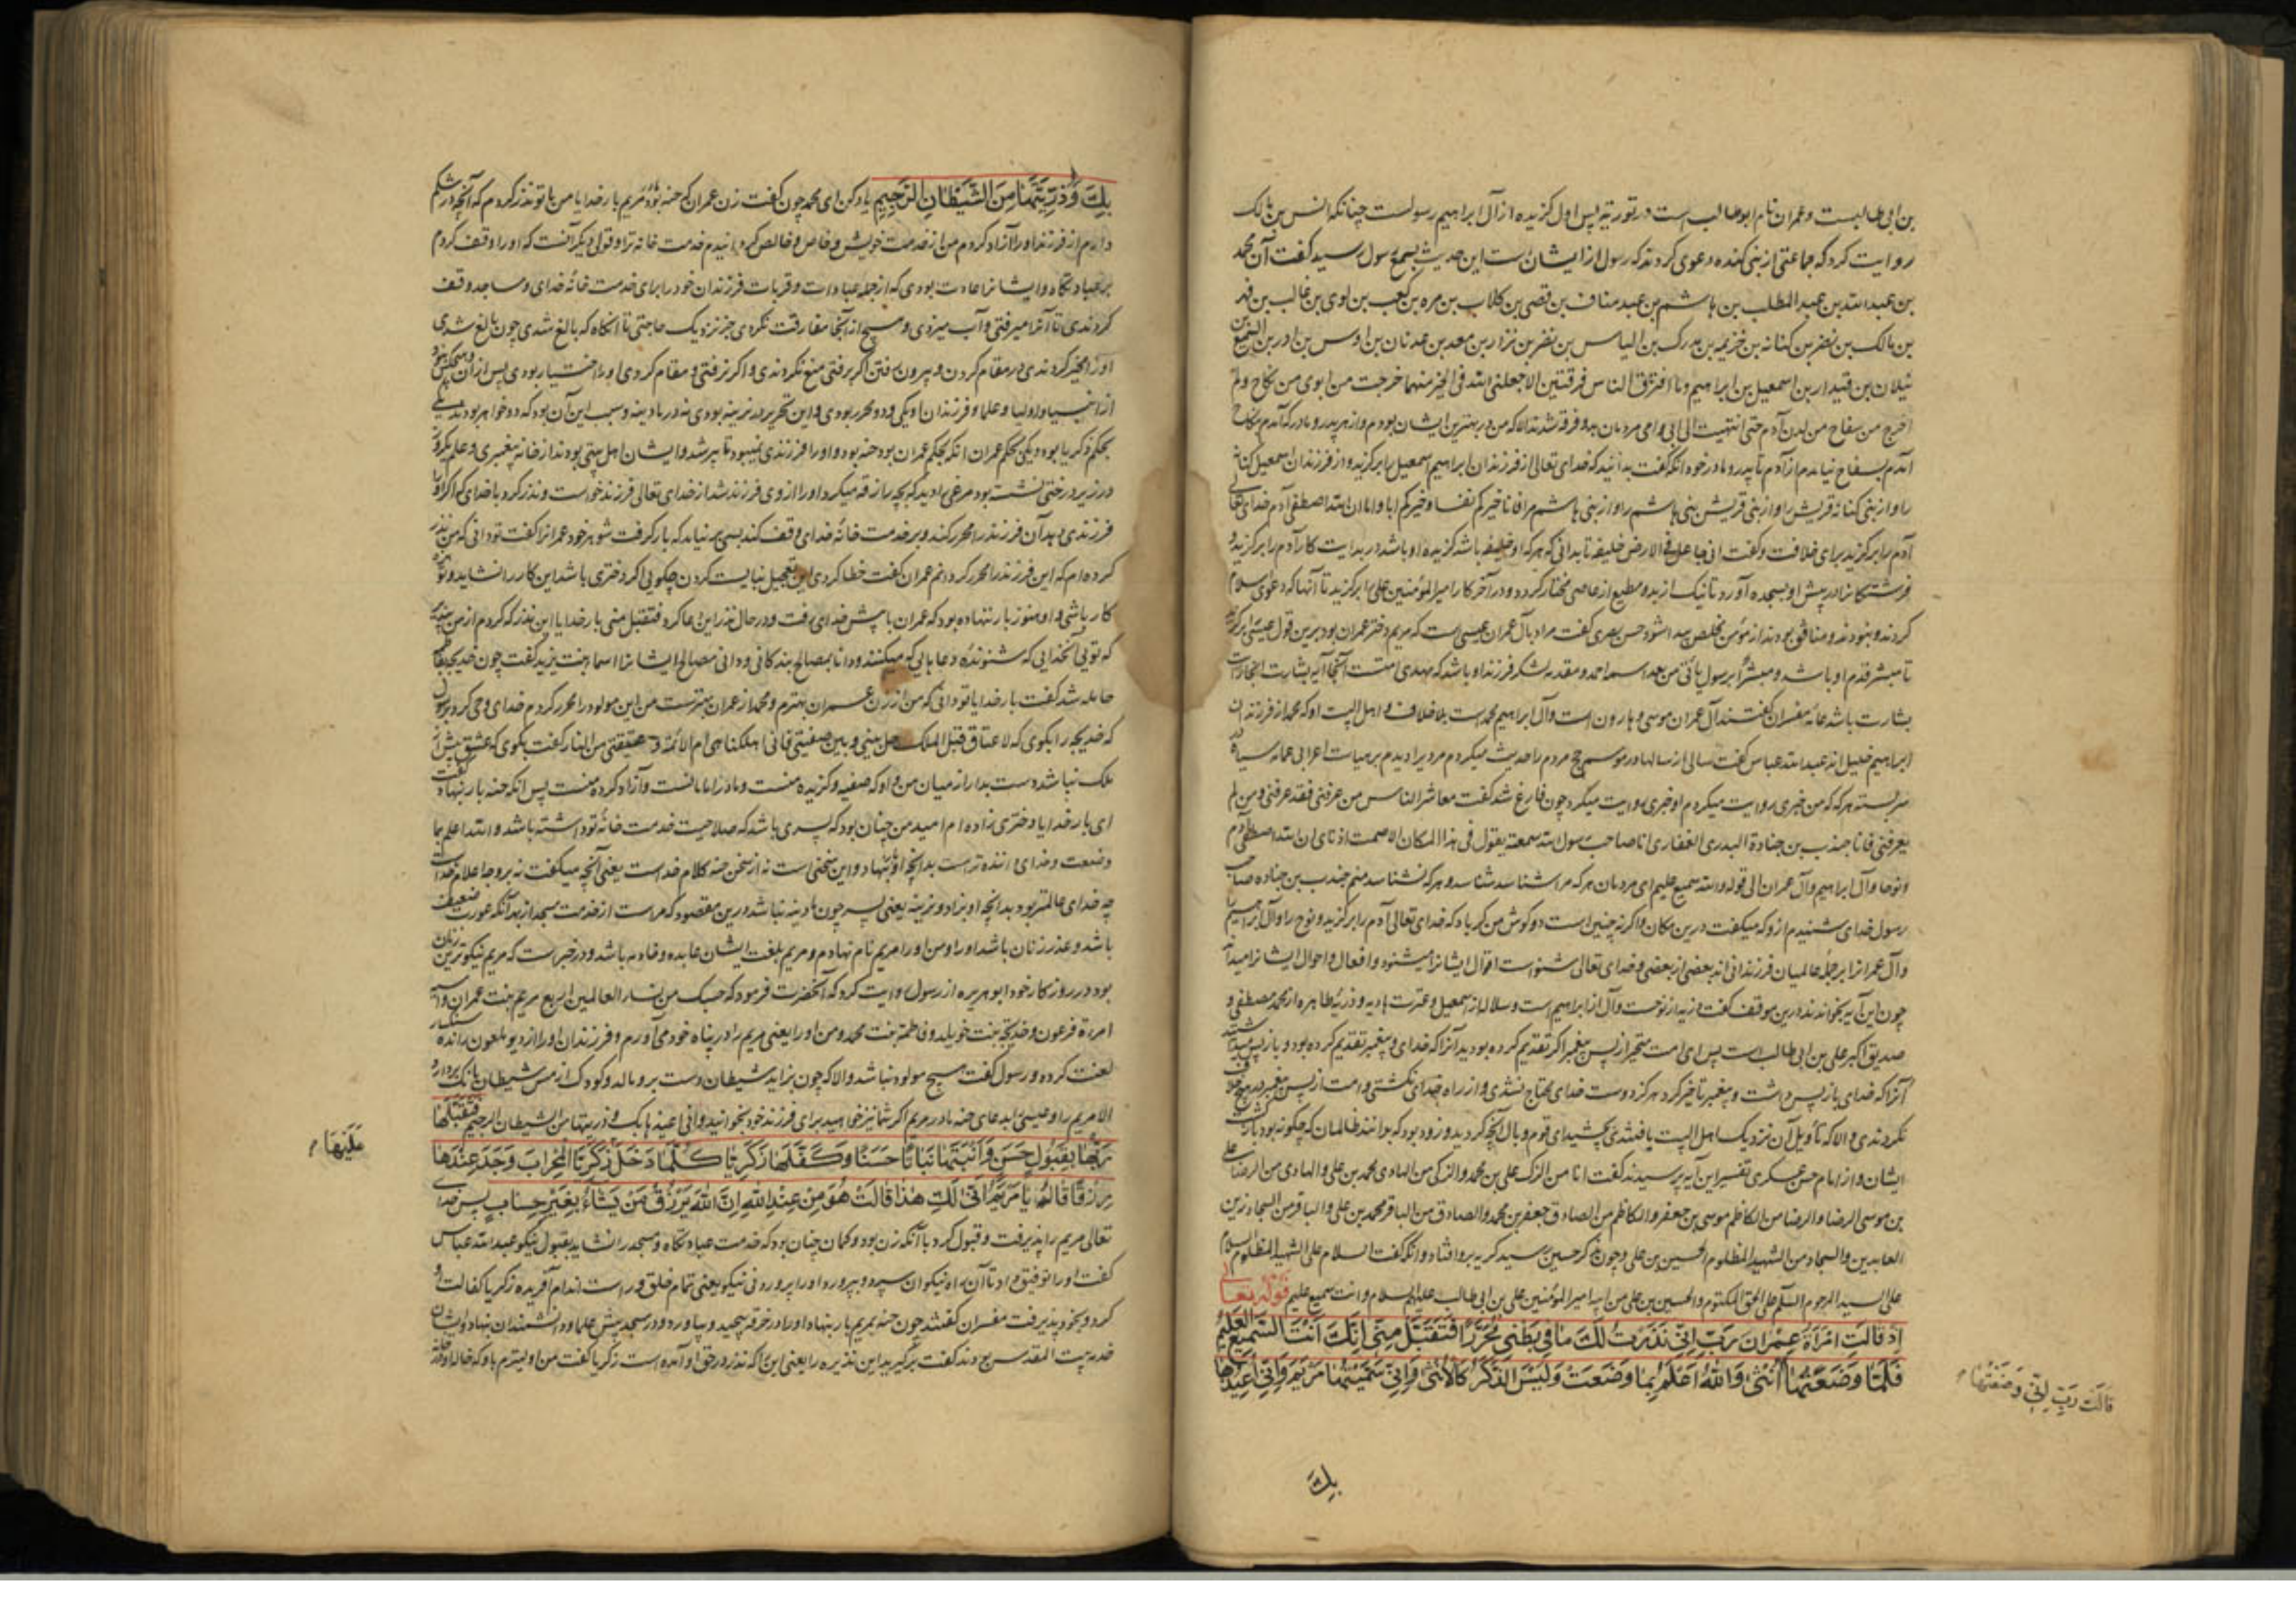 بن ابی طالبست وعمران نام ابوطالب است در توریة پس اول کزیده از آل ابراهیم رسولست چنانکه انس بن مالک
روایت کرد که جماعتی از بنی کنده دعوی کردند که رسول از ایشان است این حدیث بسمع رسول رسید گفت آن محمد
بن عبدالله بن عبدالمطلب بن هاشم بن عبد مناف بن قصی بن کلاب بن مره بن کعب بن لوی بن غالب بن فهر
بن مالک بن نضر بن کنانه بن خزیمه بن مدرکه بن الیاس بن مضر بن نزار بن معد بن عدنان بن اوس بن ادر بن
بن قیدار بن اسمعیل بن ابراهیم وما افترق الناس فرقتین الا جعلنی الله فی الخیر منهما خرجت من ابوی من نکاح ولم
اخرج من سفاح من لدن آدم حتی انتهیت الی ابی وامی مردمان بدو فرقه شدند الا که من در بهترین ایشان بودم واز هر پدر ومادر که آمدم بنکاح
آمدم بسفاح نیامدم از آدم تا پدر ومادر خود آنکه گفت بدانید که خدای تعالی از فرزندان ابراهیم اسمعیل را برکزید واز فرزندان اسمعیل کنانه
را واز بنی کنانه قریش را واز بنی قریش بنی هاشم را واز بنی هاشم مرا فانا خیرکم نفسا وخیرکم ابا وامان الله اصطفی آدم خدای تعالی
آدم را برکزید برای خلافت وگفت انی جاعل فی الارض خلیفة تا بدانی که هرکه او خلیفه باشد کزیده او باشد در بدایت کار آدم را برکزید و
فرشتکانرا در پیش او بسجده آورد تا نیک از بد ومطیع از عاصی مختار کردد ودر آخر کار امیرالمؤمنین علی را برکزید تا آنها که دعوی اسلام
کردند ونبودند ومنافق بودند از مؤمن مخلص پیدا شود حسن بصری گفت مراد بآل عمران عیسی است که مریم دختر عمران بود برین قول عیسی برکزید
تا مبشر قدم او باشد ومبشرا برسول یاتی من بعدی اسمه احمد ومقدمه لشکر فرزند او باشد که مهدی امتست آنجا آیه بشارت اینجا رایت
بشارت باشد عامه مفسران گفتند آل عمران موسی وهارون است وآل ابراهیم محمد است بلا خلاف واهل البیت او که محمد از فرزندان
ابراهیم خلیل اند عبدالله عباس گفت سالی از سالها در موسم حج مردم را حدیث میکردم مردی را دیدم بر هیات اعرابی عمامه سیاه
سر بسته هرکه که من خبری روایت میکردم او خبری روایت میکرد چون فارغ شد گفت معاشر الناس من عرفنی فقد عرفنی ومن لم
یعرفنی فانا جندب بن جنادة البدری الغفاری انا صاحب رسول الله سمعته یقول فی هذا المکان الا صمت اذنای ان الله اصطفی آدم
ونوحا وآل ابراهیم وآل عمران الی قوله والله سمیع علیم ای مردمان هرکه مرا شناسد شناسد وهرکه نشناسد منم جندب بن جناده صاحب
رسول خدای شنیدم ازو که میکفت درین مکان واکر نه چنین است دو کوش من کر باد که خدای تعالی آدم را برکزید ونوح را وآل ابراهیم
وآل عمرانرا بر جمله عالمیان فرزندانی اند بعضی از بعضی وخدای تعالی شنواست اقوال ایشانرا میشنود وافعال واحوال ایشانرا میداند
چون این آیه بخواند درین موقف گفت ازیه از نوحست وآل از ابراهیم است وسلاله از اسمعیل وعترت هادیه وذریه طاهره از محمد مصطفی و
صدیق اکبر علی بن ابی طالب است پس ای امت متحیر از پس پیغمبر اکر تقدیم کرده بودید آنرا که خدای وپیغمبر تقدیم کرده بود وباز پس
آنرا که خدای باز پس داشت وپیغمبر تاخیر کرد هرکز دوست خدای محتاج نشدی واز راه خدای نکشتی وامت از پس پیغمبر در هیچ خلاف
نکردندی والا که تاویل آن نزدیک اهل البیت یافتندی بچشید ای قوم وبال آنچه کردید وزود بود که بدانند ظالمان که چکونه بود بازکشت
ایشان واز امام حسن عسکری تفسیر این آیه پرسیدند گفت انا من الزکی علی بن محمد والزکی من الهادی محمد بن علی والهادی من الرضا علی
بن موسی الرضا والرضا من الکاظم موسی بن جعفر والکاظم من الصادق جعفر بن محمد والصادق من الباقر محمد بن علی والباقر من السجاد زین
العابدین والسجاد من الشهید المظلوم الحسین بن علی وچون بذکر حسین رسید کریه برو افتاد وآنکه گفت السلام علی الشهید المظلوم السلام
علی السید المرحوم السلام علی الحق المکتوم والحسین بن علی من ابیه امیرالمؤمنین علی بن ابی طالب علیهم السلام وانت سمیع علیم قوله تعالی
اِذْ قَالَتِ امْرَاَةُ عِمْرَانَ رَبِّ اِنِّی نَذَرْتُ لَكَ مَا فِی بَطْنِی مُحَرَّرًا فَتَقَبَّلْ مِنِّی اِنَّكَ اَنْتَ السَّمِیعُ الْعَلِیمُ
فَلَمَّا وَضَعَتْهَا اُنْثٰی وَاللّٰهُ اَعْلَمُ بِمَا وَضَعَتْ وَلَیْسَ الذَّكَرُ كَالْاُنْثٰی وَاِنِّی سَمَّیْتُهَا مَرْیَمَ وَاِنِّی اُعِیذُهَا
قَالَتْ رَبِّ اِنِّی وَضَعْتُهَا
بِكَ
بِكَ وَذُرِّیَّتَهَا مِنَ الشَّیْطَانِ الرَّجِیمِ یاد کن ای محمد چون گفت زن عمران که حنه بود مریم بار خدایا من با تو نذر کردم که آنچه در شکم
دارم از فرزند او را آزاد کردم من از خدمت خویش وخاص وخالص کردانیدم خدمت خانه ترا وقولی دیکر آنست که او را وقف کردم
بر عبادتکاه وایشانرا عادت بودی که از جمله عبادات وقربات فرزندان خود را برای خدمت خانه خدای ومساجد وقف
کردندی تا آنرا میرفتی وآب میزدی وهیچ از آنجا مفارقت نکردی جز نزدیک حاجتی تا آنکاه که بالغ شدی چون بالغ شدی
او را مخیر کردندی در مقام کردن وبیرون رفتن اکر برفتی منع نکردندی واکر نرفتی ومقام کردی او را اختیار بودی پس از آن وهیچکس نبود
از انبیا واولیا وعلما وفرزندان او یکی ودو محرر بودی واین تحریر در نرینه بودی نه در مادینه وسبب این آن بود که دو خواهر بودند یکی
بحکم ذکریا بود ویکی بحکم عمران آنکه بحکم عمران بود حنه بود واو را فرزندی نمیبود تا پیر شد وایشان اهل بیتی بودند از خانه پیغمبری وعلم یکروز
در زیر درختی نشسته بود مرغی را دید که بچه را زقه میکرد او را آرزوی فرزند شد از خدای تعالی فرزند خواست ونذر کرد با خدای که اکر او را
فرزندی دهد آن فرزند را محرر کند وبر خدمت خانه خدای وقف کند بسی بر نیامد که بار کرفت شوهر خود عمرانرا گفت تو دانی که من نذر
کرده ام که این فرزند را محرر کردانم عمران گفت خطا کردی این تعجیل نبایست کردن چکویی اکر دختری باشد این کار را نشاید وتو بزه
کار باشی واو هنوز بار ننهاده بود که عمران با پیش خدای رفت ودر حال نذر این دعا کرد فتقبل منی بار خدایا این نذر که کردم از من بپذیر
که تویی آن خدایی که شنونده دعاهایی که میکنند ودانا بمصالح بندکانی ودانی مصالح ایشانرا اسما بنت یزید گفت چون خدیجه بفاطمه
حامله شد گفت بار خدایا تو دانی که من از زن عمران بهترم ومحمد از عمران بهترست من این مولود را محرر کردم خدای وحی کرد برسول
که خدیجه را بکوی که لا عتاق قبل الملک خل بینی وبین صفیتی فانی املکنا هی ام الائمة وعتیقتی من النار گفت بکوی که عتق پیش از
ملک نباشد دست بدار از میان من واو که صفیه وکزیده منست ومادر امامانست وآزاد کرده منست پس آنکه حنه بار بنهاد گفت
ای بار خدایا دختری زاده ام امید من چنان بود که پسری باشد که صلاحیت خدمت خانه تو داشته باشد والله اعلم بما
وضعت وخدای داننده تر است بدانچه او بنهاد واین سخنی است نه از سخن حنه کلام خداست یعنی آنچه میکفت نه بر وجه اعلام خداست
چه خدای عالمتر بود بدانچه او بزاد ونرینه یعنی پسر چون مادینه نباشد درین مقصود که مراست از خدمت مسجد از بهر آنکه عورت ضعیف
باشد وعذر زنان باشد او را ومن او را مریم نام نهادم ومریم بلغت ایشان عابده وخادمه باشد ودر خبر است که مریم نیکوترین زنان
بود در روزکار خود ابوهریره از رسول روایت کرد که آنحضرت فرمود که حسبک من نساء العالمین اربع مریم بنت عمران وآسیه
امراة فرعون وخدیجه بنت خویلد وفاطمه بنت محمد ومن او را یعنی مریم را در پناه خود می آورم وفرزندان او را از دیو ملعون رانده سنکسار
لعنت کرده ورسول گفت هیچ مولود نباشد والا که چون بزاید شیطان دست برو مالد وکودک از مس شیطان بانک بردارد
الا مریم را وعیسی را بدعای حنه مادر مریم اکر شما نیز خواهید برای فرزند خود بخوانید وانی اعیذها بک وذریتها من الشیطان الرجیم فَتَقَبَّلَهَا
رَبُّهَا بِقَبُولٍ حَسَنٍ وَاَنْبَتَهَا نَبَاتًا حَسَنًا وَكَفَّلَهَا زَكَرِیَّا كُلَّمَا دَخَلَ زَكَرِیَّا الْمِحْرَابَ وَجَدَ عِنْدَهَا
عَلَیْهَا
رِزْقًا قَالَ یَا مَرْیَمُ اَنّٰی لَكِ هٰذَا قَالَتْ هُوَ مِنْ عِنْدِ اللّٰهِ اِنَّ اللّٰهَ یَرْزُقُ مَنْ یَشَاءُ بِغَیْرِ حِسَابٍ پس خدای
تعالی مریم را پذیرفت وقبول کرد با آنکه زن بود وکمان چنان بود که خدمت عبادتکاه ومسجد را نشاید بقبول نیکو عبدالله عباس
گفت او را توفیق داد تا آن راه نیکوان سپرد وبپرورد او را پروردنی نیکو یعنی تمام خلق وراست اندام آفریده زکریا کفالت او
کرد وبخود پذیرفت مفسران گفتند چون حنه بمریم بار بنهاد او را در خرقه پیچید وبیاورد ودر مسجد پیش علما ودانشمندان بنهاد وایشان
خدمه بیت المقدس بودند گفت بر کیرید این نذیره را یعنی این را که نذر در حق او آمده است زکریا گفت من اولیترم باو که خاله او